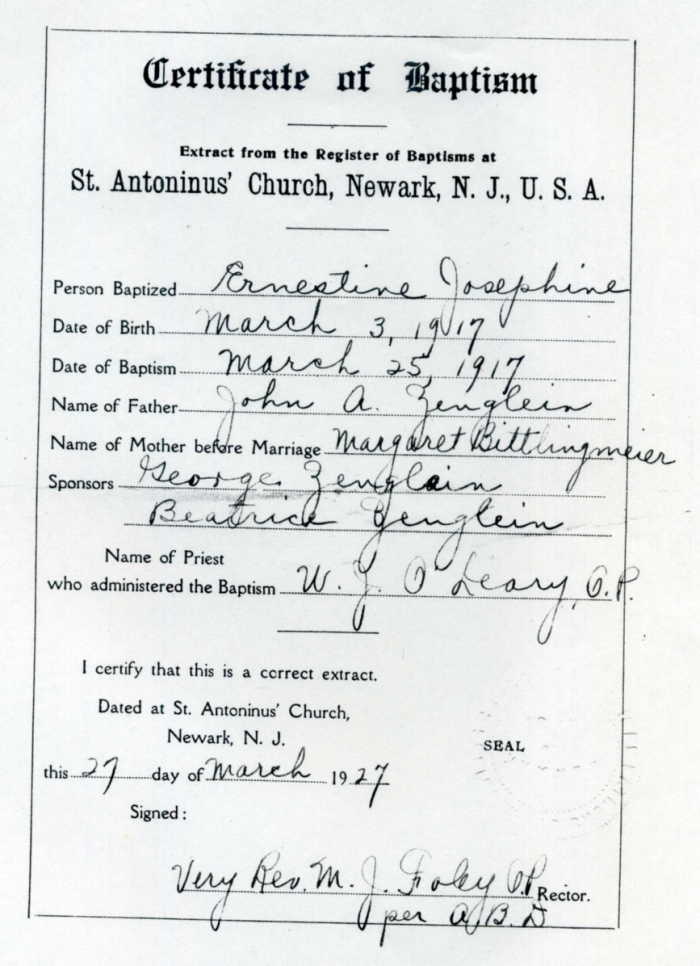 Certificate of Baptism
Extract from the Register of Baptisms at
St. Antoninus' Church, Newark, N. J., U. S. A.
Person Baptized Ernestine Josephine
Date of Birth March 3, 1917
Date of Baptism March 25, 1917
Name of Father John A. Zenglein
Name of Mother before Marriage Margaret Bittlingmeier
Sponsors George Zenglein
Beatrice Zenglein
Name of Priest
who administered the Baptism W. J. O'Leary, O.P.
I certify that this is a correct extract.
Dated at St. Antoninus' Church,
Newark, N. J.
SEAL
this 27 day of March 1927
Signed:
Very Rev. M. J. Foley O.P. Rector.
per A.B.D